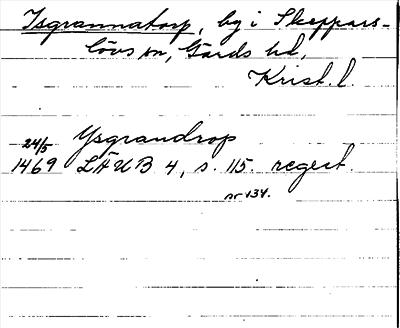 Isgrannatorp, by i Skeppars-
lövs sn, Gärds hd,
Krist. l.
Ysgrandrop
24/5
1469 LÄUB 4, s. 115. regest.
nr 134.